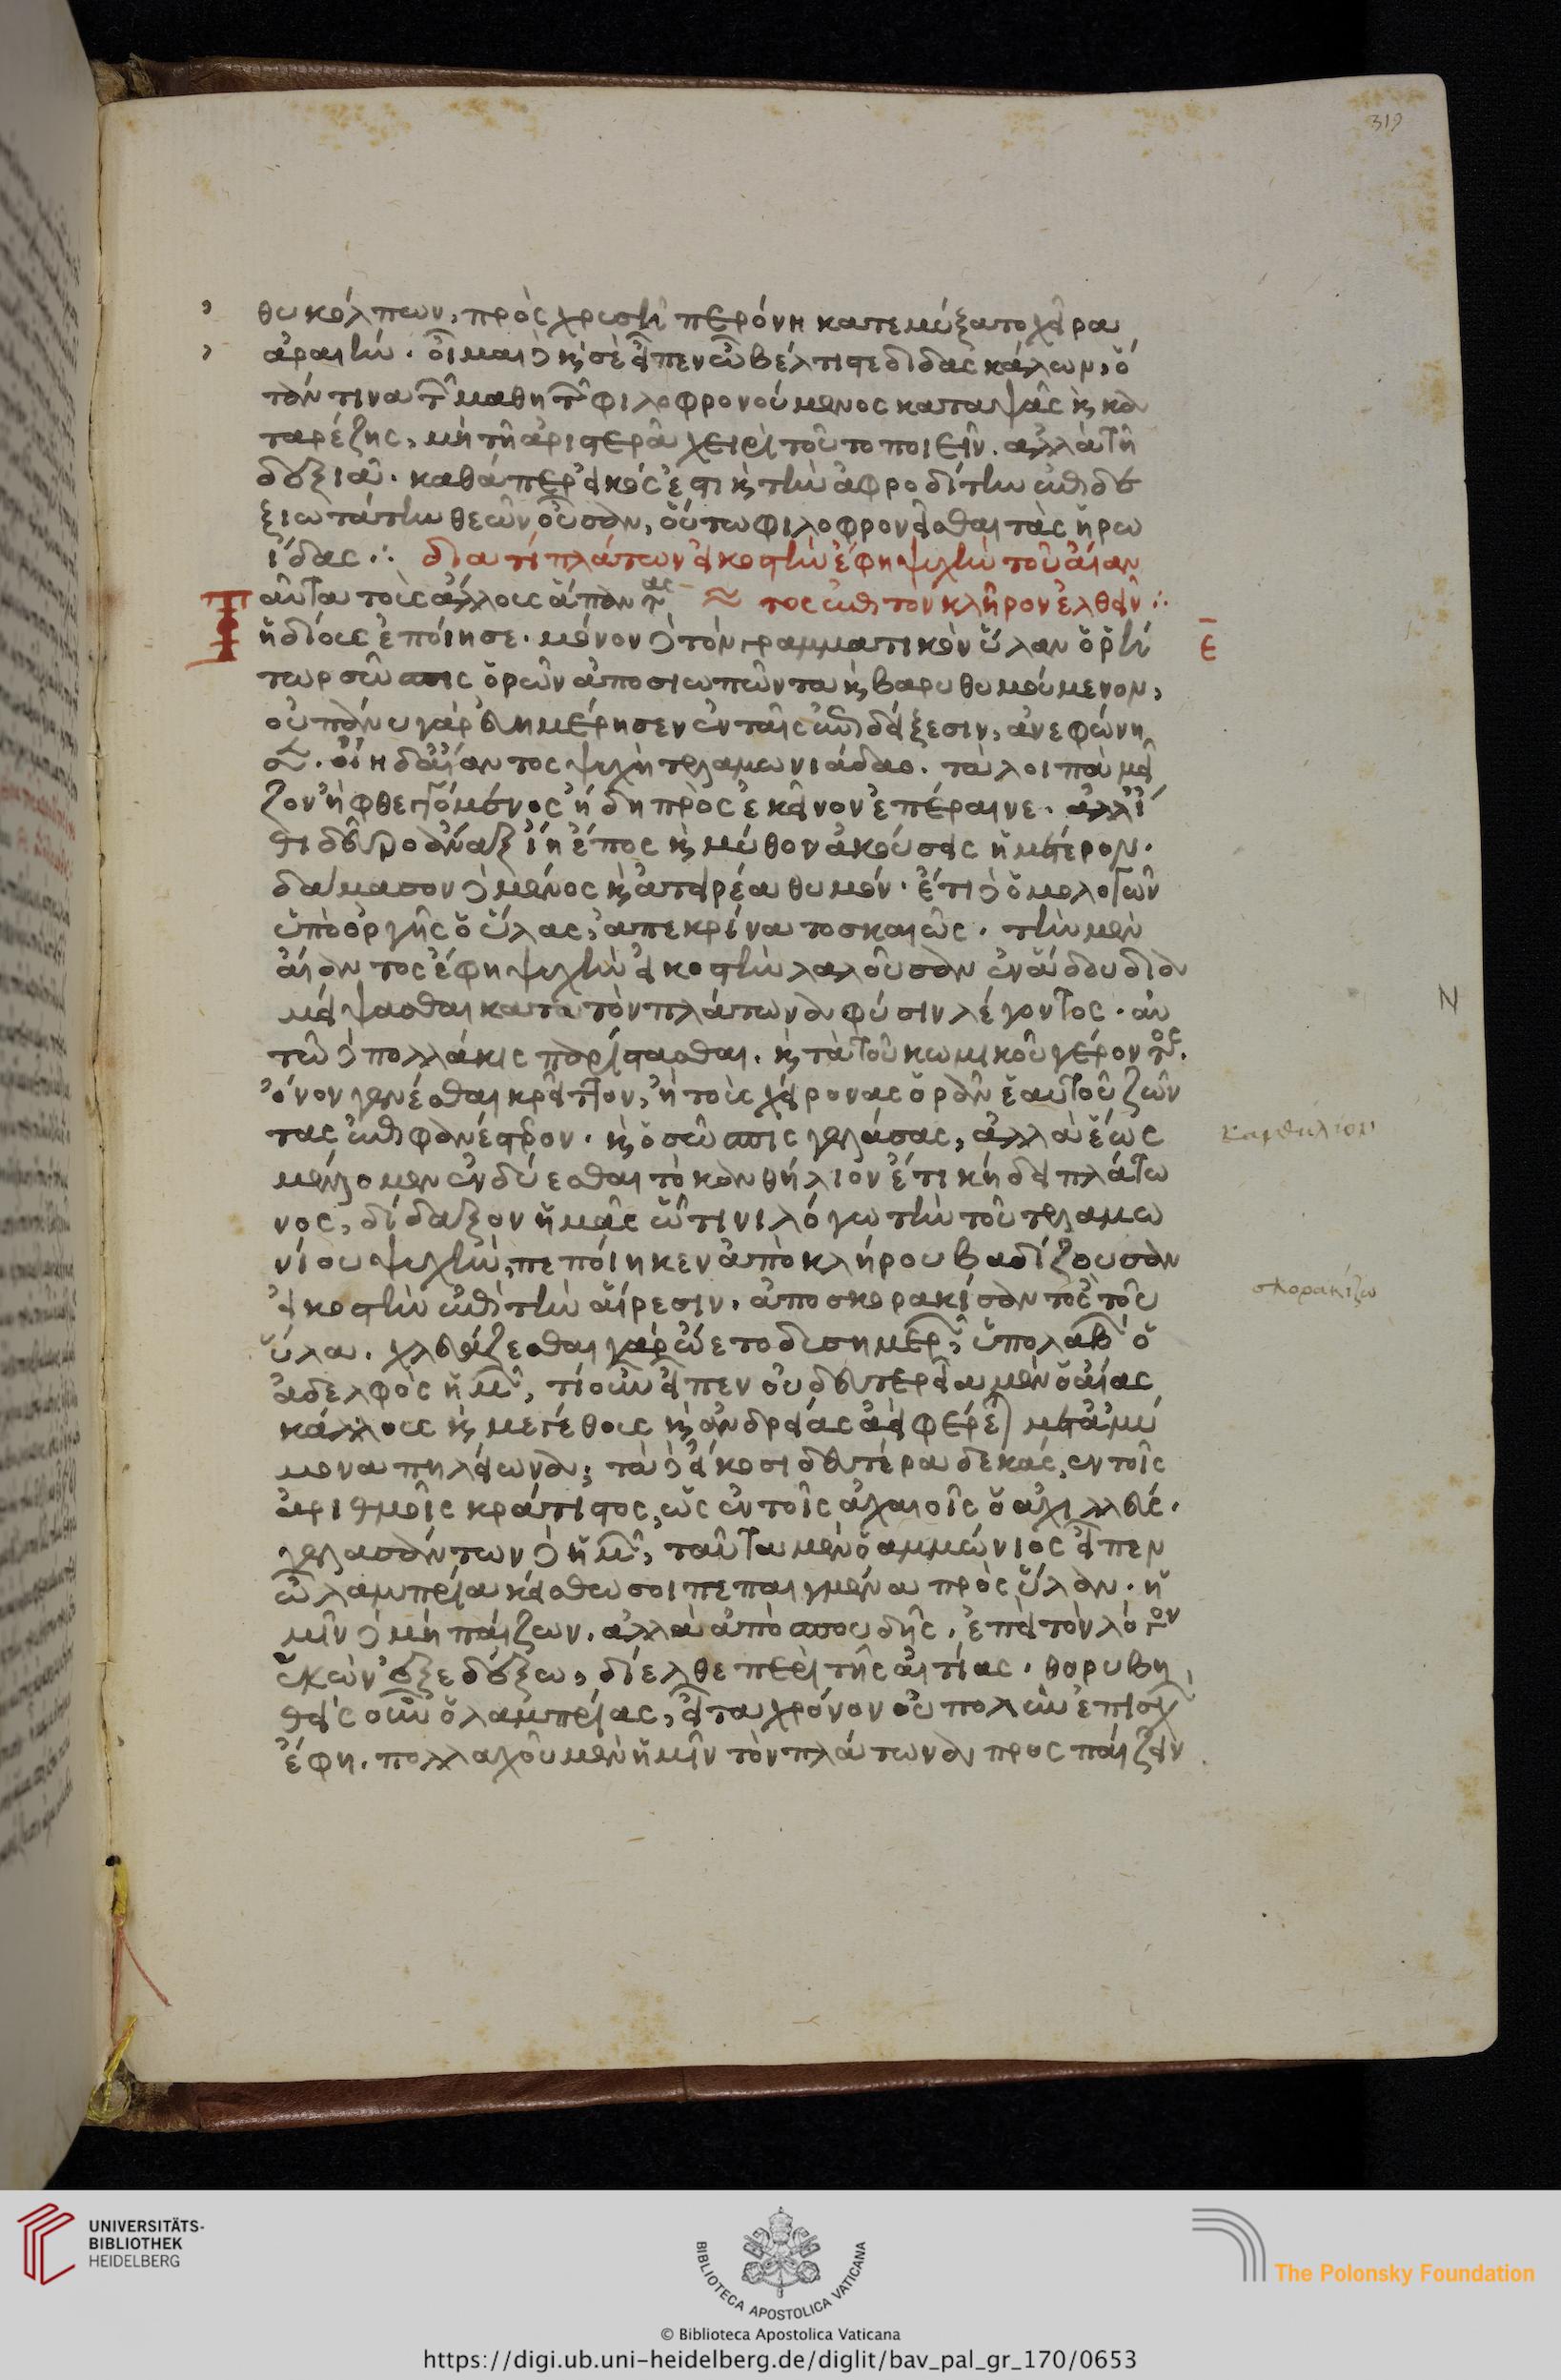 319
θυκόλπων, πρὸς χρυσῆ περόνη κατεμύξατο χεῖρα
ἀραιήν. οἶμαι δὲ καὶ σὲ εἶπεν ὦ βέλτιστε διδασκάλων, ὅ
τάν τινα τῶν μαθητῶν φιλοφρονούμενος καταψᾶς καὶ κα
ταρέζης, μὴ τῆ ἀριστερᾶ χειρὶ τοῦτο ποιεῖν. ἀλλὰ τῆ
δεξιᾶ. καθάπερ εἰκός ἐστι καὶ τὴν ἀφροδίτην ἐπιδε
ξιωτάτην θεῶν οὖσαν, οὕτω φιλοφρονεῖσθαι τὰς ἡρω
ίδας ∴ διατί πλάτων εἰκοστὴν ἔφη ψυχὴν τοῦ αἴαν
Ταῦτα τοὺς ἄλλους ἅπαντας τος ἐπὶ τὸν κλῆρον ἐλθεῖν ∴
ἡδίους ἐποίησε. μόνον δὲ τὸν γραμματικὸν ὕλαν ὁ ῥή
ε
τωρ σώσπις ὁρῶν ἀποσιωπῶντα καὶ βαρυθυμούμενον,
οὐ πάνυ γὰρ εὐημέρησεν ἐν ταῖς ἐπιδείξεσιν, ἀνεφώνη
σεν. οἴη δ' αἴαντος ψυχὴ τελαμωνιάδαο. τὰ λοιπὰ μεῖ
ζον ἢ φθεγγόμενος ἤδη πρὸς ἐκεῖνον ἐπέραινε. ἀλλ' ἴ
θι δεῦρο ἄναξ ἵν' ἔπος καὶ μῦθον ἀκούσεις ἡμέτερον.
δάμασον δὲ μένος καὶ ἀτειρέα θυμόν. ἔτι δὲ ὁμαλος ὢν
ὑπὸ ὀργῆς ὁ ὕλας, ἀπεκρίνατο σκαιῶς. τὴν μὲν
αἴαντος ἔφη ψυχὴν εἰκοστὴν λαχοῦσαν ἐν ἅδου δια
μείψασθαι κατὰ τὸν πλάτωνα φύσιν λέοντος. αυ
τῶ δὲ πολλάκις παρίστασθαι. καὶ τὰ τοῦ κωμικοῦ γέροντος.
ὄνον γενέσθαι κρεῖττον, ἢ τοὺς χείρονας ὁρᾶν ἑαυτοῦ ζῶν
τας ἐπιφανέστερον. καὶ ὁ σώσπις γελάσας, ἀλλὰ ἕως
κανθήλιον
μέλλομεν ἐνδύεσθαι τὸ κανθήλιον ἔτι κήδει πλάτω
νος, δίδαξον ἡμᾶς ᾧτινι λόγω τὴν τοῦ τελαμω
νίου ψυχὴν, πεποίηκεν ἀπὸ κλήρου βαδίζουσαν
εἰκοστὴν ἐπὶ τὴν αἵρεσιν. ἀποσκορακίσαντος τοῦ
σκορακίζω
ὕλα. χλευάζεσθαι γὰρ ᾤετο δυσημερῶν, ὑπολαβὼν ὁ
ἀδελφὸς ἡμῶν, τί οὖν εἶπεν οὐ δευτερεῖα μὲν ὁ αἴας
κάλλους καὶ μεγέθους καὶ ἀνδρείας ἀεὶ φέρεται μετ' ἀμύ
μονα πηλείωνα; τὰ δὲ εἴκοσι δευτέρα δεκάς, ἐν τοῖς
ἀριθμοῖς κράτιστος, ὡς ἐν τοῖς ἀχαιοῖς ὁ ἀχιλλεύς.
γελασάντων δὲ ἡμῶν, ταῦτα μὲν ὁ ἀμμώνιος εἶπεν
ὦ λαμπρία κείσθω σοι πεπαιγμένα πρὸς ὕλαν. ἡ
μῖν δὲ μὴ παίζων. ἀλλὰ ἀπὸ σπουδῆς, ἐπεὶ τὸν λόγον
ἑκὼν ἐξεδέξω, δίελθε περὶ τῆς αἰτίας. θορυβη
θεὶς οὖν ὁ λαμπρίας, εἶτα χρόνον οὐ πολὺν ἐπισχὼν
ἔφη. πολλαχοῦ μὲν ἡμῖν τὸν πλάτωνα προσπαίζειν
UNIVERSITÄTS-
BIBLIOTHEK
HEIDELBERG
BIBLIOTECA APOSTOLICA VATICANA
The Polonsky Foundation
© Biblioteca Apostolica Vaticana
https://digi.ub.uni-heidelberg.de/diglit/bav_pal_gr_170/0653